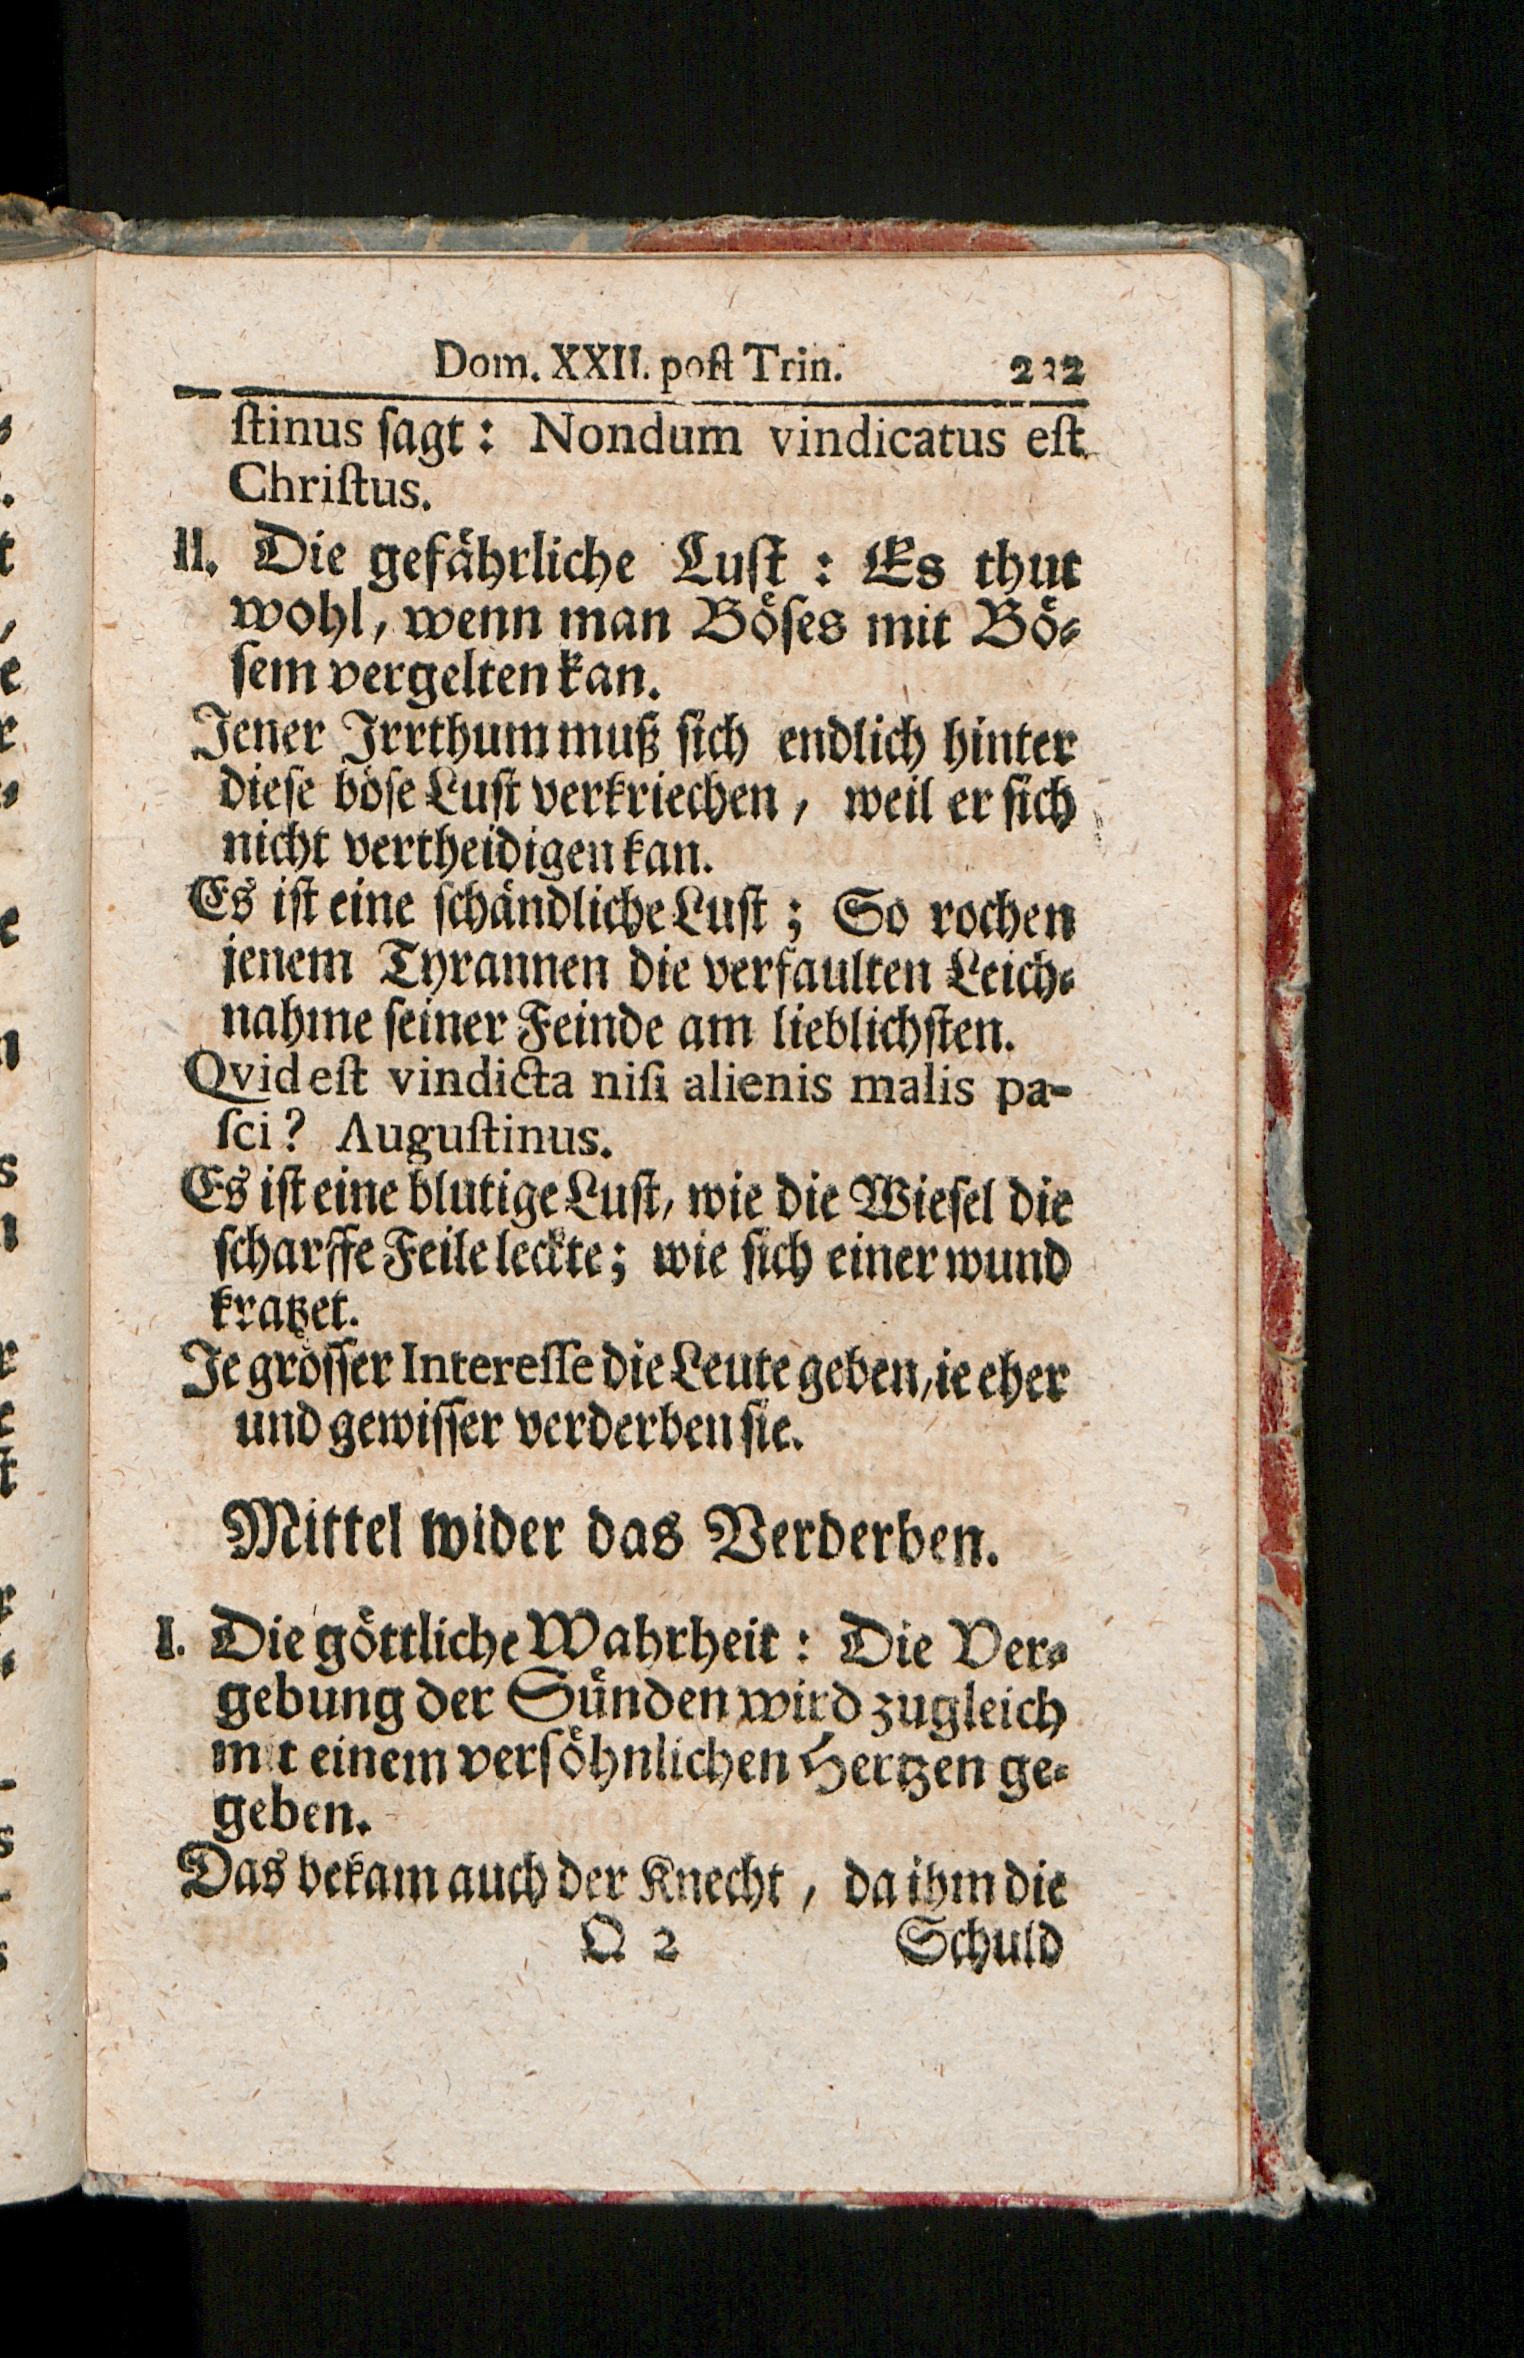 Dom. XXII. poſt Trin. 232
ſtinus ſagt: Nondum vindicatus eſt
Chriſtus.
II. Die gefährliche Luſt: Es thut
wohl, wenn man Böſes mit Bö⸗
ſem vergelten kan.
Jener Irrthum muß ſich endlich hinter
dieſe böſe Luſt verkriechen, weil er ſich
nicht vertheidigen kan.
Es iſt eine ſchändliche Luſt; So rochen
jenem Tyrannen die verfaulten Leich⸗
nahme ſeiner Feinde am lieblichſten.
Qvid eſt vindicta niſi alienis malis pa-
ſci? Auguſtinus.
Es iſt eine blutige Luſt, wie die Wieſel die
ſcharffe Feile leckte; wie ſich einer wund
kratzet.
Je gröſſer Intereſſe die Leute geben, ie eher
und gewiſſer verderben ſie.
Mittel wider das Verderben.
I. Die göttliche Wahrheit: Die Ver⸗
gebung der Sünden wird zugleich
mit einem verſöhnlichen Hertzen ge⸗
geben.
Das bekam auch der Knecht, da ihm die
Q 2 Schuld